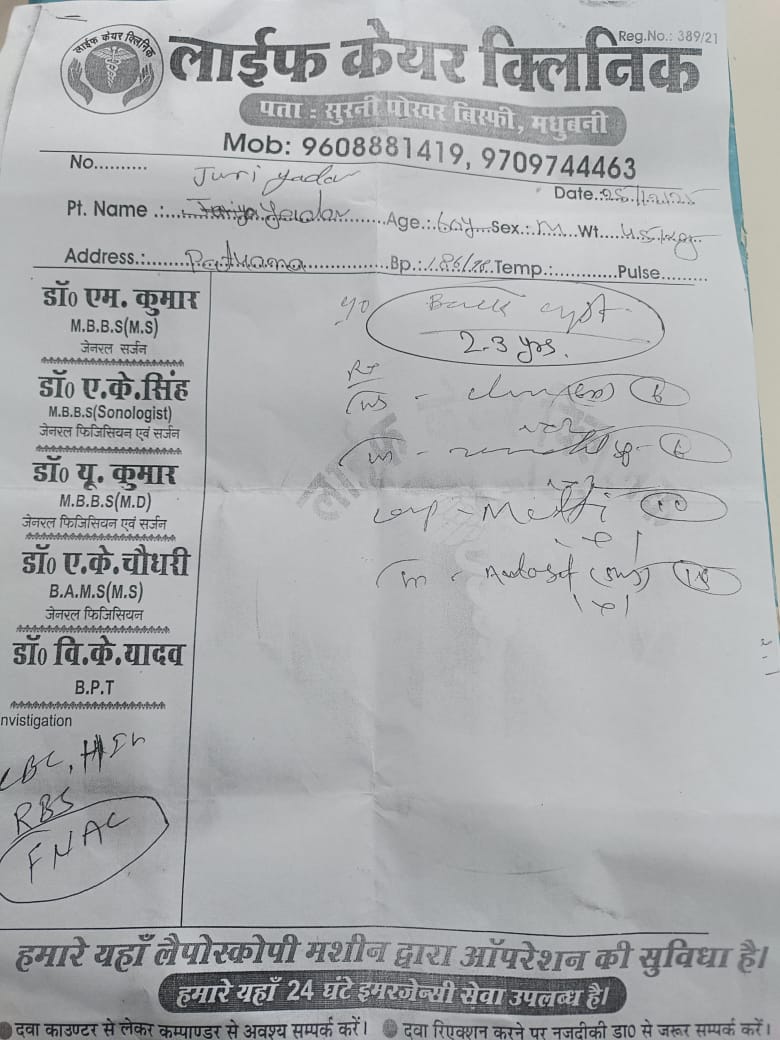 लाईफ केयर क्लिनिक
Reg.No.: 389/21
लाईफ केयर क्लिनिक
पता : सुरनी पोखर बिस्फी, मधुबनी
Mob: 9608881419, 9709744463
No..........
Juri yadav
Date.:
Pt. Name .: Age.: 60y Sex.: M Wt. 45 kg
Address.: Bp.: 186/78 Temp.:............Pulse.........
डॉ० एम. कुमार
M.B.B.S(M.S)
जेनरल सर्जन
डॉ० ए.के.सिंह
M.B.B.S(Sonologist)
जेनरल फिजिसियन एवं सर्जन
डॉ० यू. कुमार
M.B.B.S(M.D)
जेनरल फिजिसियन एवं सर्जन
डॉ० ए.के.चौधरी
B.A.M.S(M.S)
जेनरल फिजिसियन
डॉ० वि.के.यादव
B.P.T
nvistigation
CBC,
RBS
FNAC
Back cyst
2-3 yrs.
Rx
हमारे यहाँ लैपोस्कोपी मशीन द्वारा ऑपरेशन की सुविधा है।
हमारे यहाँ 24 घंटे इमरजेन्सी सेवा उपलब्ध है।
दवा काउन्टर से लेकर कम्पाण्डर से अवश्य सम्पर्क करें।
दवा रिएक्शन करने पर नजदीकी डा० से जरूर सम्पर्क करें।